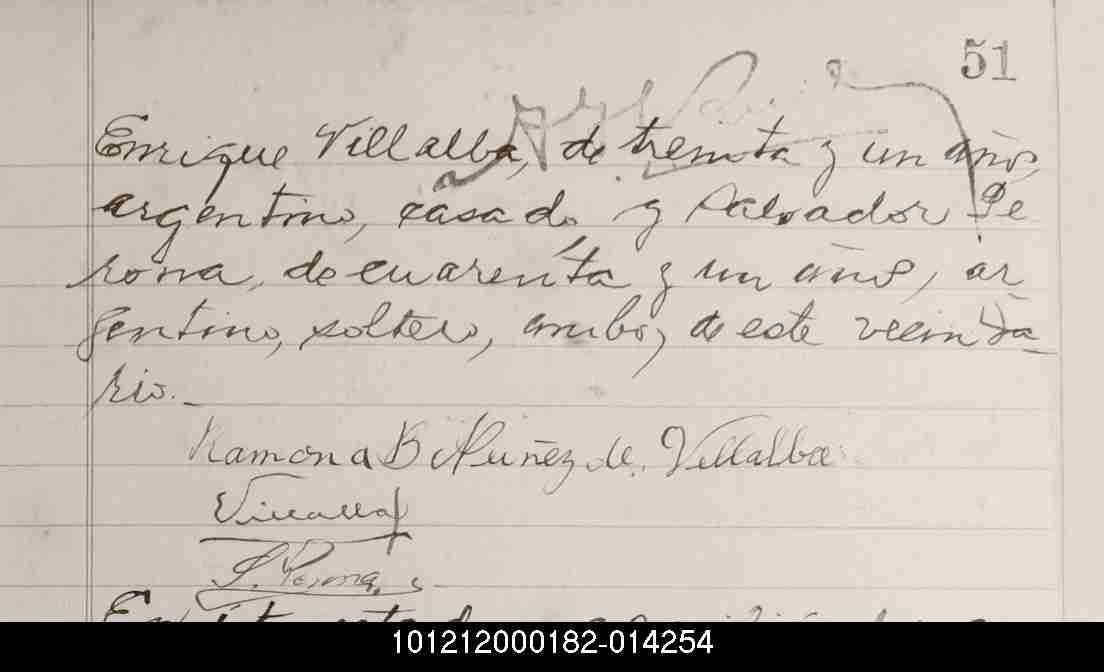 51
Enrique Villalba, de treinta y un años,
argentino, casado, y Salvador Pe
rona, de cuarenta y un años, ar
gentino, soltero, ambos de este vecinda
rio.
Ramona B Nuñez de Villalba
Villalba
S. Perona
101212000182-014254